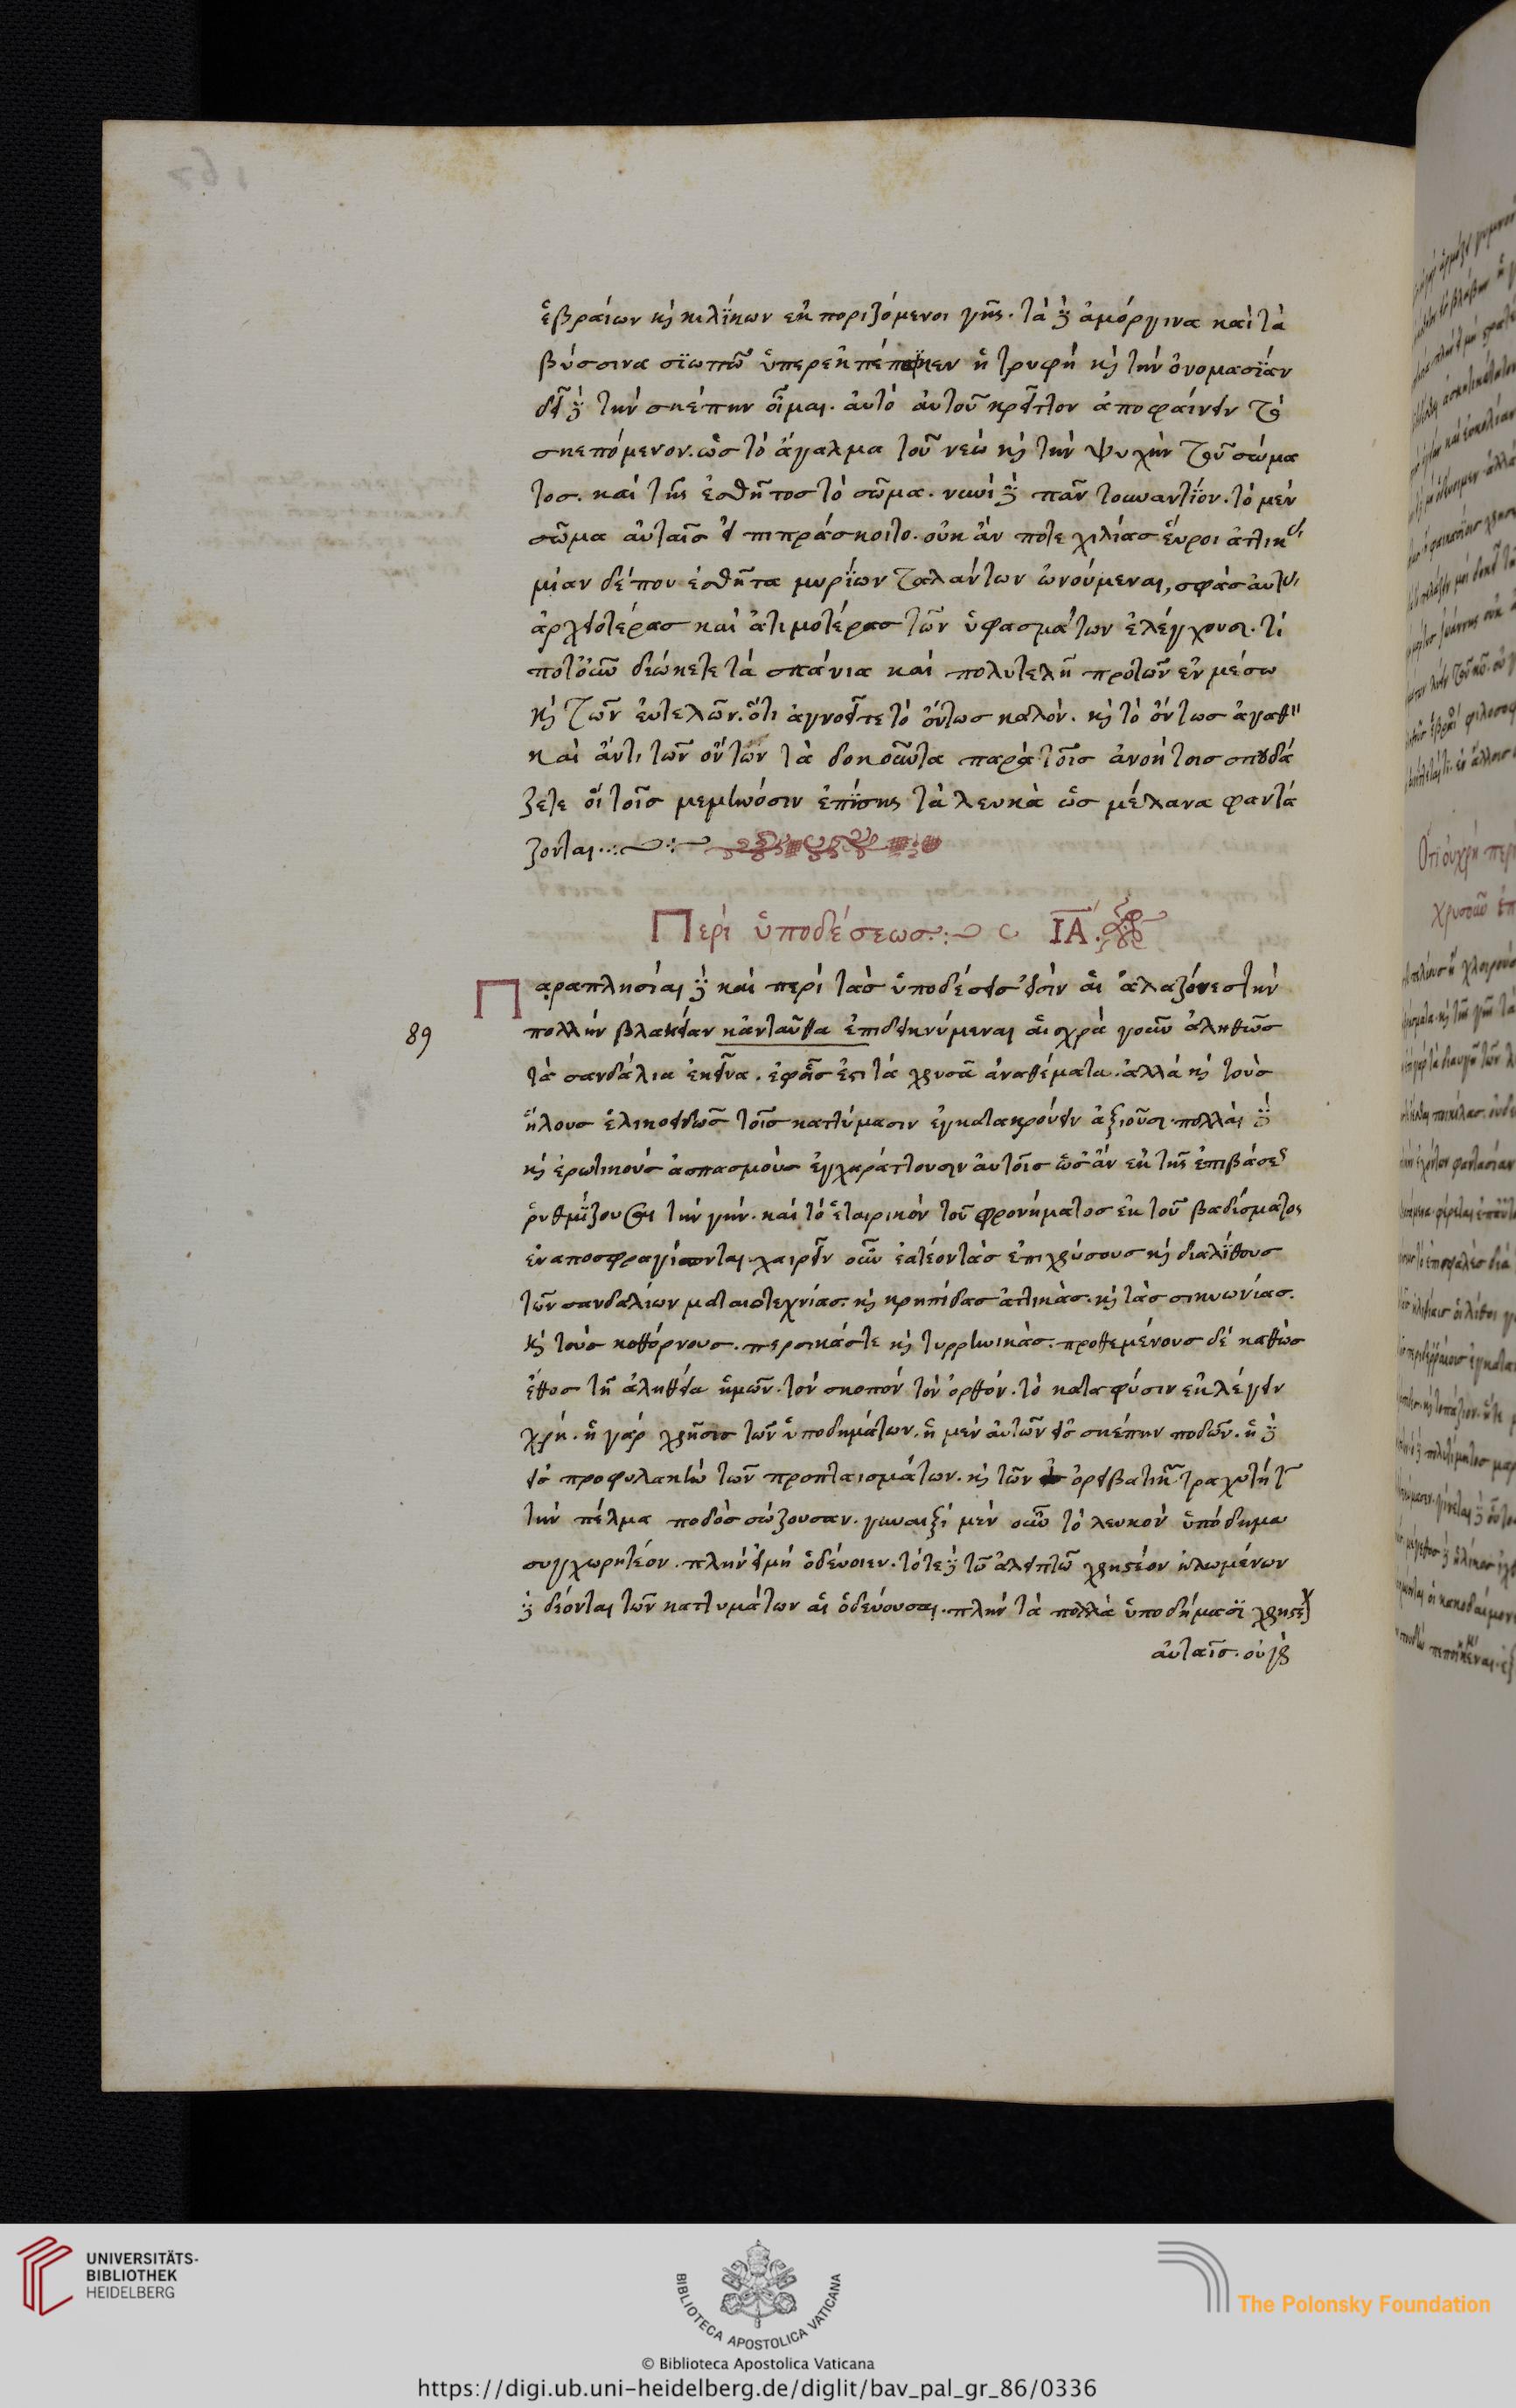 ἑβραίων κὶ κιλίκων ἐκποριζόμενοι γῆς. τὰ δὲ ἀμόργινα καὶ τὰ
βύσσινα σϊωπῶ ὑπερεκπέπαικεν ἡ τρυφὴ κὶ τὴν ὀνομασΐαν
δεῖ δὲ τὴν σκέπην οἶμαι. ἀυτὸ ἀυτοῦ κρεῖττον ἀποφαίνειν τὸ
σκεπόμενον. ὡς τὸ ἄγαλμα τοῦ νεὼ κὶ τὴν ψυχὴν τοῦ σώμα
τος. καὶ τῆς ἐσθῆτος τὸ σῶμα. νυνὶ δὲ πᾶν τουναντΐον. τὸ μὲν
σῶμα ἀυταῖς εἰ πιπράσκοιτο. οὐκ ἄν ποτε χιλίας ἕυροι ἀττικὰς
μίαν δέ που ἐσθῆτα μυρΐων ταλάντων ὠνούμεναι, σφὰς ἀυτὰς
ἀχρειοτέρας καὶ ἀτιμοτέρας τῶν ὑφασμάτων ἐλέγχουσι. τί
ποτ' οὖν διώκετε τὰ σπάνια καὶ πολυτελῆ πρὸ τῶν ἐν μέσω
κὶ τῶν ἐυτελῶν. ὅτι ἀγνοεῖτε τὸ ὄντως καλὸν. κὶ τὸ ὄντως ἀγαθὸν
καὶ ἀντὶ τῶν ὄντων τὰ δοκοῦντα παρὰ τοῖς ἀνοήτοις σπουδά
ζετε οἳ τοῖς μεμηνόσιν ἐπΐσης τὰ λευκὰ ὡς μέλανα φαντά
ζονται
Περὶ ὑποδέσεως. ΙΑ.
Παραπλησίαι δὲ καὶ περὶ τὰς ὑποδέσεις εἰσὶν αἱ ἀλαζόνες τὴν
89 πολλὴν βλακείαν κἀνταῦθα ἐπιδεικνύμεναι ἀισχρὰ γοῦν ἀληθῶς
τὰ σανδάλια ἐκεῖνα. ἐφ' οἷς ἐστι τὰ χρυσᾶ ἀναθέματα. ἀλλὰ κὶ τοὺς
ἥλους ἑλικοειδῶς τοῖς καττύμασιν ἐγκατακρούειν ἀξιοῦσι. πολλαὶ δὲ
κὶ ἐρωτικοὺς ἀσπασμοὺς ἐγχαράττουσιν ἀυτοῖς ὡς ἂν ἐκ τῆς ἐπιβάσεως
ῥυθμΐζουσαι τὴν γῆν. καὶ τὸ ἑταιρικὸν τοῦ φρονήματος ἐκ τοῦ βαδίσματος
ἐναποσφραγίσωνται. χαιρεῖν οὖν ἐατέον τὰς ἐπιχρύσους κὶ διαλΐθους
τῶν σανδαλίων ματαιοτεχνίας. κὶ κρηπίδας ἀττικὰς. κὶ τὰς σικυωνίας.
κὶ τοὺς κοθόρνους. περσικάς τε κὶ τυρρηνικὰς. προθεμένους δὲ καθὼς
ἔθος τῆ ἀληθεία ἡμῶν. τὸν σκοπὸν τὸν ὀρθόν. τὸ κατα φύσιν ἐκλέγειν
χρή. ἡ γὰρ χρῆσις τῶν ὑποδημάτων. ἡ μὲν ἀυτῶν εἰς σκέπην ποδῶν. ἡ δὲ
εἰς προφυλακὴν τῶν προπταισμάτων. κὶ τῶν ὀρειβατικῆ τραχύτητ
τὴν πέλμα ποδὸς σώζουσαν. γυναιξὶ μὲν οὖν τὸ λευκὸν ὑπόδημα
συγχωρητέον. πλὴν εἰ μὴ ὁδέυοιεν. τότε δὲ τῶ ἀλειπτῶ χρηστέον ἡλωμένων
δὲ δέονται τῶν καττυμάτων αἱ ὁδεύουσαι. πλὴν τὰ πολλὰ ὑποδήμασϊ χρηστέον
ἀυταῖς. οὐ γὰρ
UNIVERSITÄTS-
BIBLIOTHEK
HEIDELBERG
BIBLIOTECA APOSTOLICA VATICANA
The Polonsky Foundation
© Biblioteca Apostolica Vaticana
https://digi.ub.uni-heidelberg.de/diglit/bav_pal_gr_86/0336